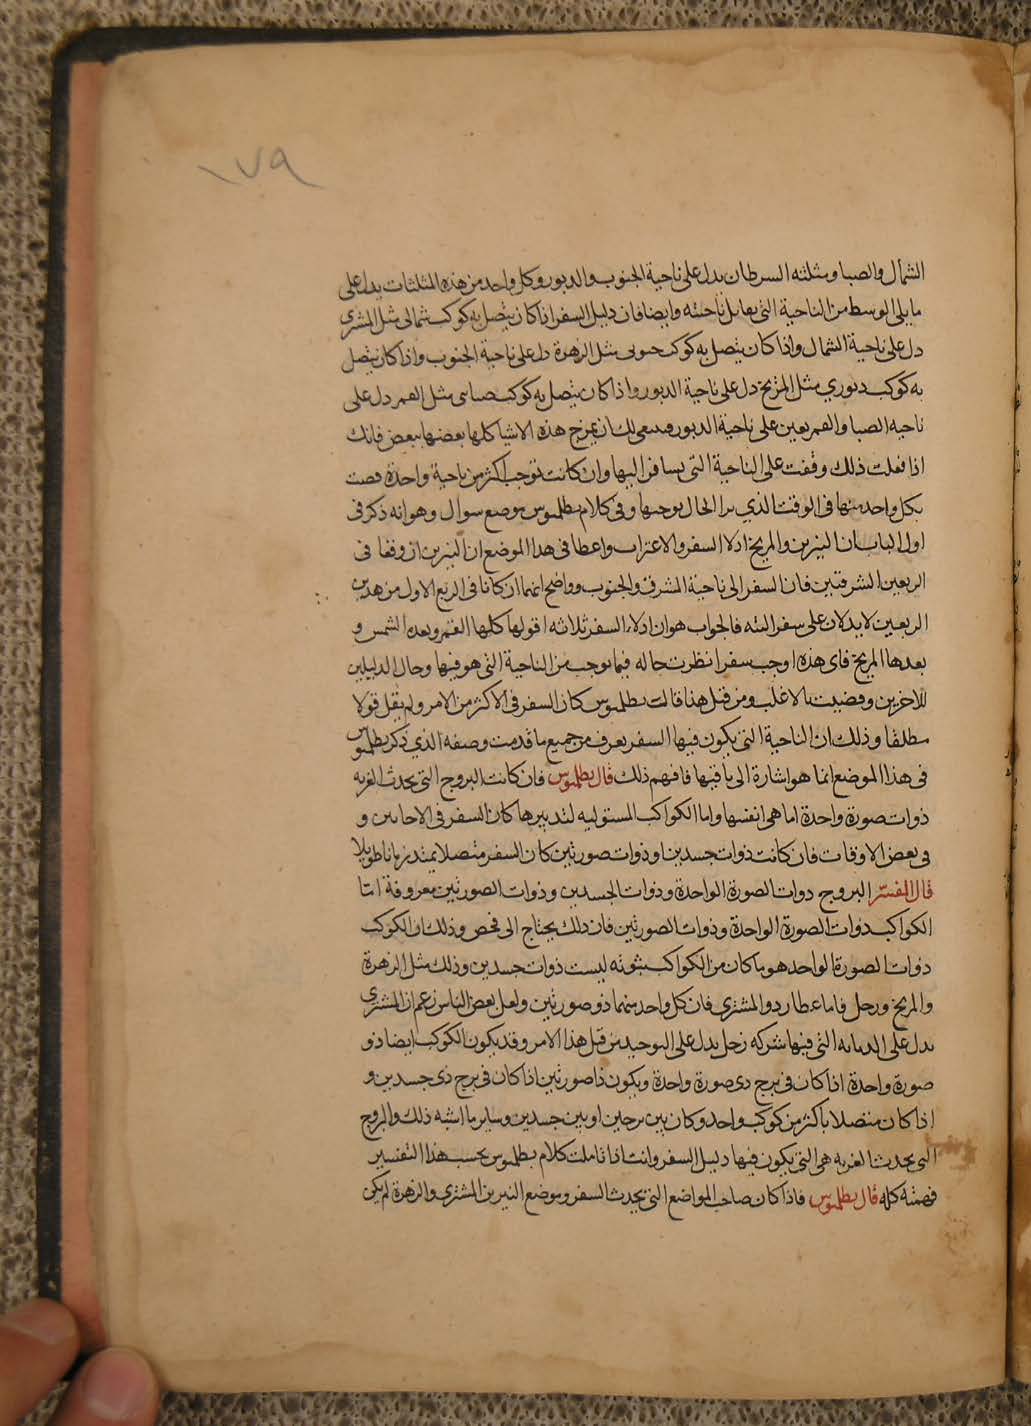 ١٧٩
الشمال والصبا ومثلثه السرطان يدل على ناحية الجنوب والدبور وكل واحد من هذه المثلثات يدل على
ما يلي الوسط من الناحية التي تقابل ناحيته وايضا فان دليل السفر اذا كان يتصل به كوكب شمالي مثل المشتري
دل على ناحية الشمال واذا كان يتصل به كوكب جنوبي مثل الزهرة دل على ناحية الجنوب واذا كان يتصل
به كوكب دبوري مثل المريخ دل على ناحية الدبور واذا كان يتصل به كوكب صبائي مثل القمر دل على
ناحية الصبا والقمر يعين على ناحية الدبور فينبغي لك ان تمزج هذه الاشيا كلها بعضها ببعض فانك
اذا فعلت ذلك وقفت على الناحية التي يسافر اليها وان كانت توجب اكثر من ناحية واحدة قضيت
بكل واحد منها في الوقت الذي الحال يوجبها وفي كلام بطلميوس موضع سوال وهو انه ذكر في
اول الباب ان النيرين والمريخ ادلا السفر والاغتراب واعطا في هذا الموضع ان النيرين ان وقعا في
الربعين الشرقيين فان السفر الى ناحية المشرق والجنوب وواضح انهما ان كانا في الربع الاول من هذين
الربعين لا يدلان على سفر البته فالجواب هو ان ادلاء السفر ثلاثه اقولها كلها القمر وبعده الشمس و
بعدها المريخ فاي هذه اوجب سفرا نظرت حاله فيما توجب من الناحية التي هو فيها وحال الدليلين
للاخرين وقضيت بالاغلب ومن قبل هذا قالت بطلميوس كان السفر في الاكثر من الامر ولم يقل قولا
مطلقا وذلك ان الناحية التي يكون فيها السفر تعرف من جميع ما قدمت وصفه الذي ذكر بطلميوس
في هذا الموضع انما هو اشارة الى باقيها فافهم ذلك قال بطلميوس فان كانت البروج التي تحدث الغربه
ذوات صورة واحدة اما هي انفسها واما الكواكب المستوليه لتدبيرها كان السفر في الاحايين و
في بعض الاوقات فان كانت ذوات جسدين او ذوات صورتين كان السفر متصلا يمتد زمانا طويلا
قال المفسر البروج ذوات الصورة الواحدة وذوات الجسدين وذوات الصورتين معروفة اما
الكواكب ذوات الصورة الواحدة وذوات الصورتين فان ذلك يحتاج الى فحص وذلك ان الكوكب
ذوات الصورة الواحده هو ما كان من الكواكب بيوته ليست ذوات جسدين وذلك مثل الزهرة
والمريخ وزحل فاما عطارد والمشتري فان كل واحد منهما ذو صورتين ولعل بعض الناس زعم ان المشتري
يدل على الديانه التي فيها شركه زحل يدل على التوحيد من قبل هذا الامر وقد يكون الكوكب ايضا ذو
صورة واحدة اذا كان في برج ذي صورة واحدة ويكون ذا صورتين اذا كان في برج ذي جسدين و
اذا كان متصلا باكثر من كوكب واحد وكان بين برجين او بين جسدين وساير ما اشبه ذلك والبروج
التي تحدث الغربه هي التي يكون فيها دليل السفر وانت اذا تاملت كلام بطلميوس بحسب هذا التفسير
فهمته كله قال بطلميوس فاذا كان صاحب المواضع التي تحدث السفر وموضع النيرين المشتري والزهرة لم يكن